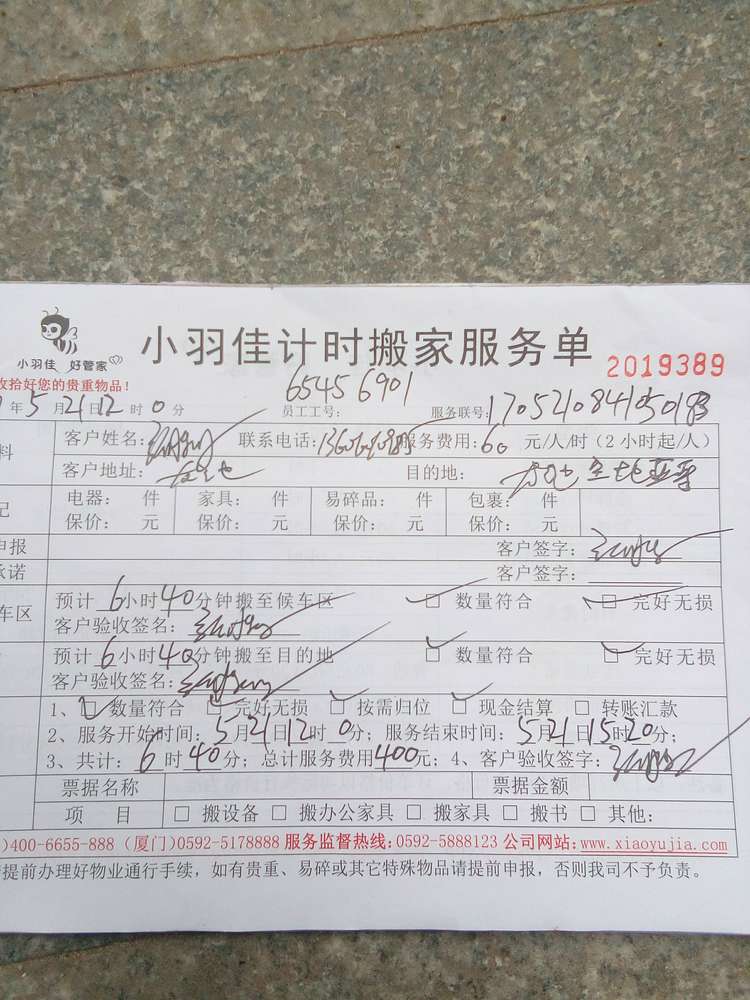 小羽佳 好管家
小羽佳计时搬家服务单 2019389
收拾好您的贵重物品!
年5月21日12时0分 员工工号: 6545 6901 服务联号: 170521084105018
料 客户姓名: 联系电话: 服务费用: 60 元/人/时 (2小时起/人)
客户地址: 目的地:
记 电器: 件 家具: 件 易碎品: 件 包裹: 件
保价: 元 保价: 元 保价: 元 保价: 元
申报 客户签字:
承诺 客户签字:
车区 预计6小时40分钟搬至候车区 ☑ 数量符合 ☑ 完好无损
客户验收签名:
预计6小时40分钟搬至目的地 ☑ 数量符合 ☑ 完好无损
客户验收签名:
1、☑ 数量符合 ☑ 完好无损 ☑ 按需归位 ☑ 现金结算 □ 转账汇款
2、服务开始时间: 5月21日12时0分; 服务结束时间: 5月21日15时20分;
3、共计: 6时40分; 总计服务费用400元; 4、客户签字:
票据名称 票据金额
项 目 □ 搬设备 □ 搬办公家具 □ 搬家具 □ 搬书 □ 其他:
)400-6655-888 (厦门)0592-5178888 服务监督热线:0592-5888123 公司网站:www.xiaoyujia.com
提前办理好物业通行手续,如有贵重、易碎或其它特殊物品请提前申报,否则我司不予负责。